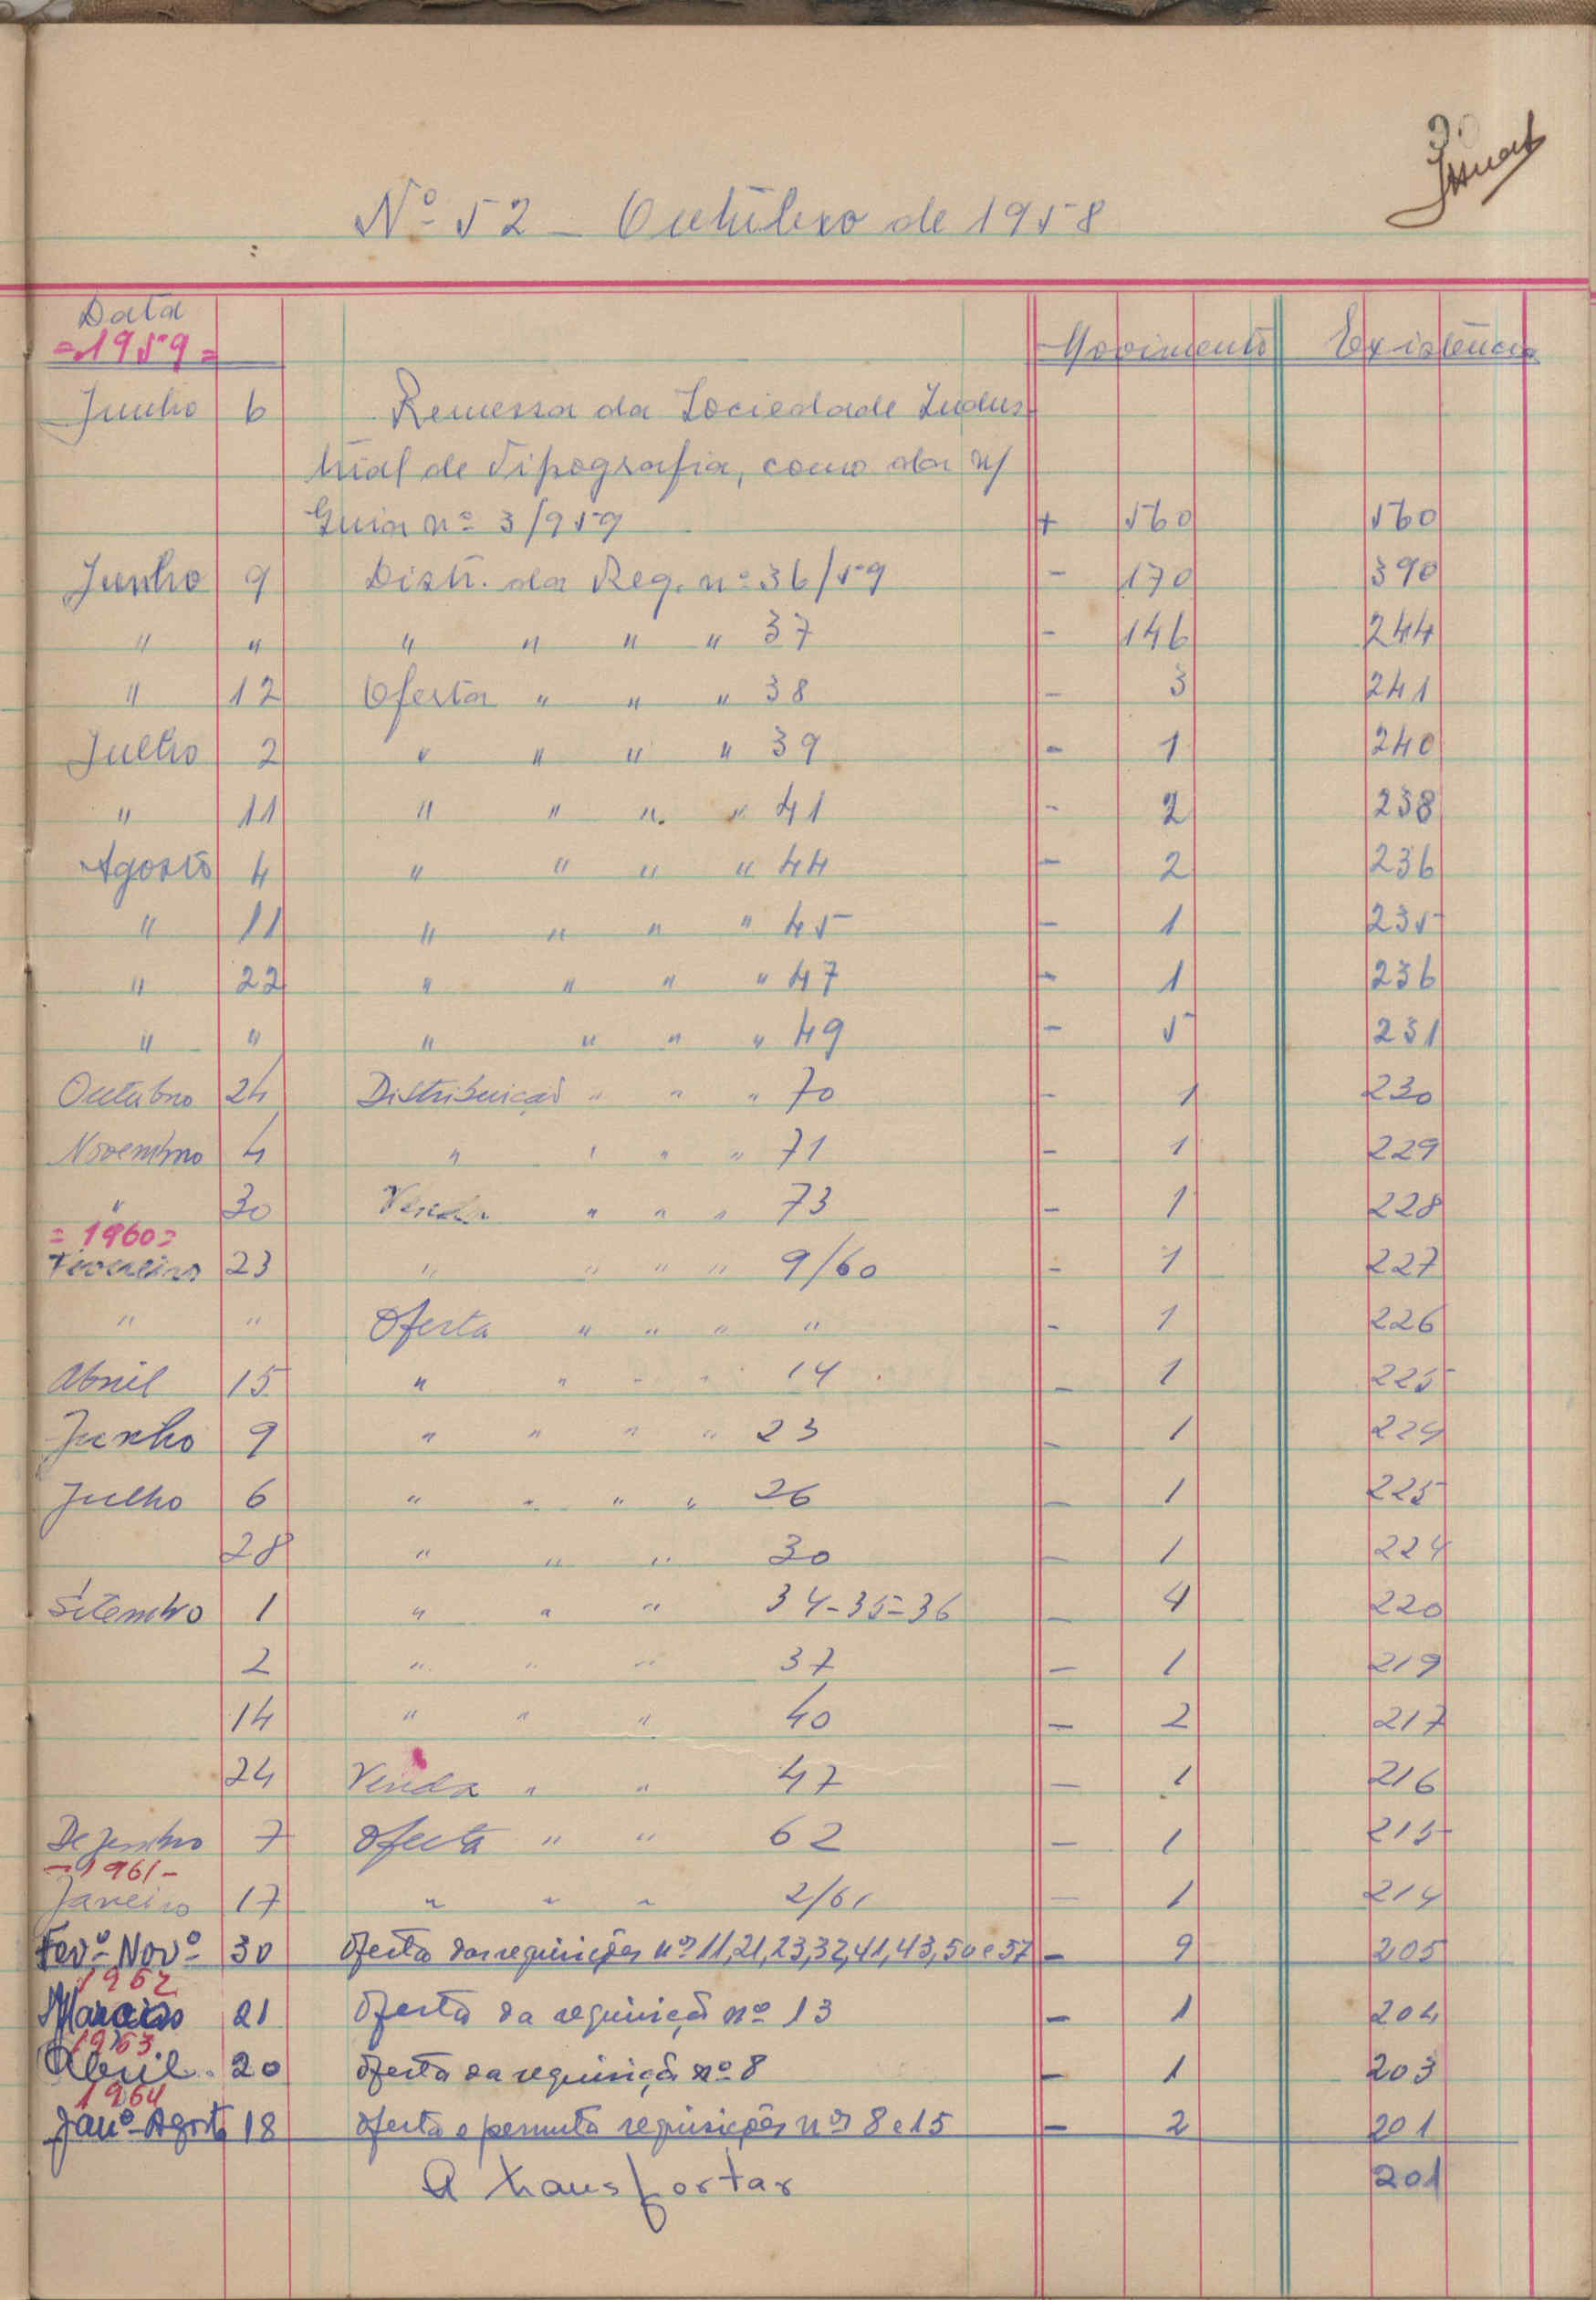 30
Nº 52 – Outubro de 1958
Data
=1959= Movimento Existência
Junho 6 Remessa da Sociedade Indus
trial de Tipografia, como da n/
Guia nº 3/959 + 560 560
Junho 9 Distr. da Req. nº 36/59 – 170 390
" " " " " " 37 – 146 244
" 12 Oferta " " " 38 – 3 241
Julho 2 " " " " 39 – 1 240
" 11 " " " " 41 – 2 238
Agosto 4 " " " " 44 – 2 236
" 11 " " " " 45 – 1 235
" 22 " " " " 47 + 1 236
" " " " " " 49 – 5 231
Outubro 24 Distribuição " " " 70 – 1 230
Novembro 4 " " " " 71 – 1 229
" 30 Venda " " " 73 – 1 228
=1960=
Fevereiro 23 " " " " 9/60 – 1 227
" " Oferta " " " " – 1 226
Abril 15 " " " " 14 – 1 225
Junho 9 " " " " 23 – 1 224
Julho 6 " " " " 26 – 1 225
28 " " " 30 – 1 224
Setembro 1 " " " 34-35=36 – 4 220
2 " " " 37 – 1 219
14 " " " 40 – 2 217
24 Venda " " 47 – 1 216
Dezembro 7 Oferta " " 62 – 1 215
–1961–
Janeiro 17 " " " 2/61 – 1 214
Fevº-Novº 30 Oferta das requisições nºs 11,21,23,32,41,43,50 e 57 – 9 205
1962
21 Oferta da requisição nº 13 – 1 204
1963
Abril. 20 Oferta da requisição nº 8 – 1 203
1964
Janº-Agosto 18 Oferta e permuta requisições nºs 8 e 15 – 2 201
A transportar 201